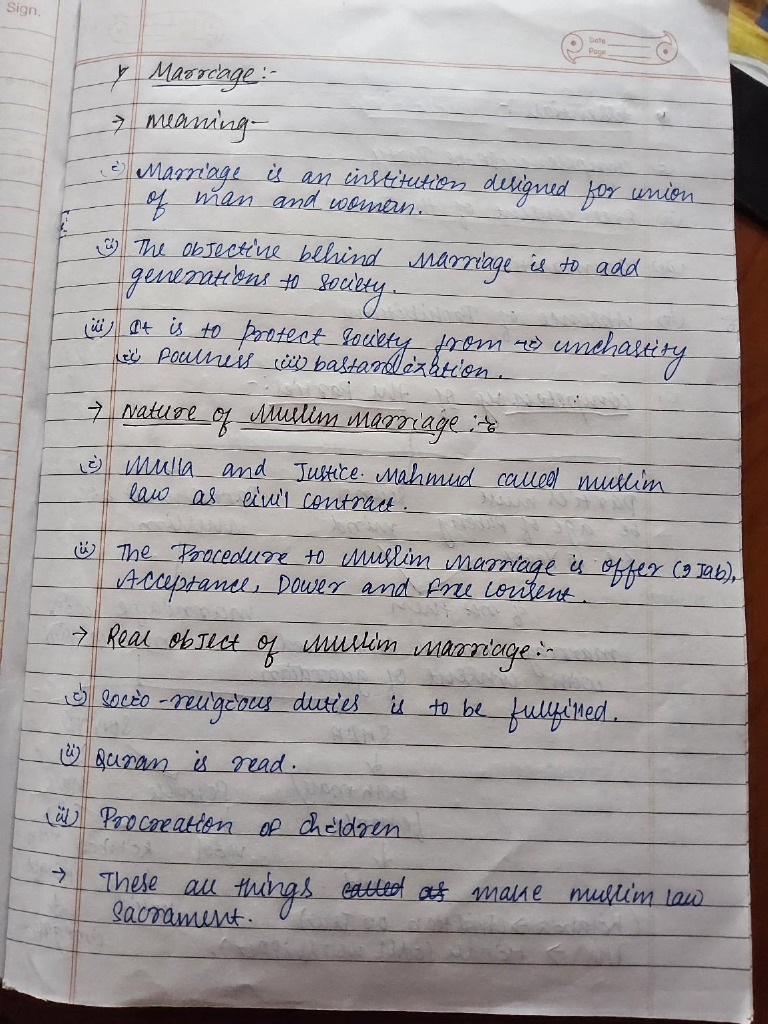 Sign.
Date
Page
Marriage:-
→ meaning-
(i) Marriage is an institution designed for union
of man and woman.
(ii) The objective behind Marriage is to add
generations to society.
(iii) It is to protect society from (i) unchastity
(ii) Foulness (iii) bastardization.
→ Nature of Muslim Marriage :-
(i) Mulla and Justice. Mahmud called muslim
law as civil contract.
(ii) The Procedure to Muslim Marriage is offer (Ijab),
Acceptance, Dower and free consent.
→ Real object of Muslim Marriage:-
(i) Socio-religious duties is to be fullfilled.
(ii) Quran is read.
(iii) Procreation of children
→ These all things called as make muslim law
Sacrament.